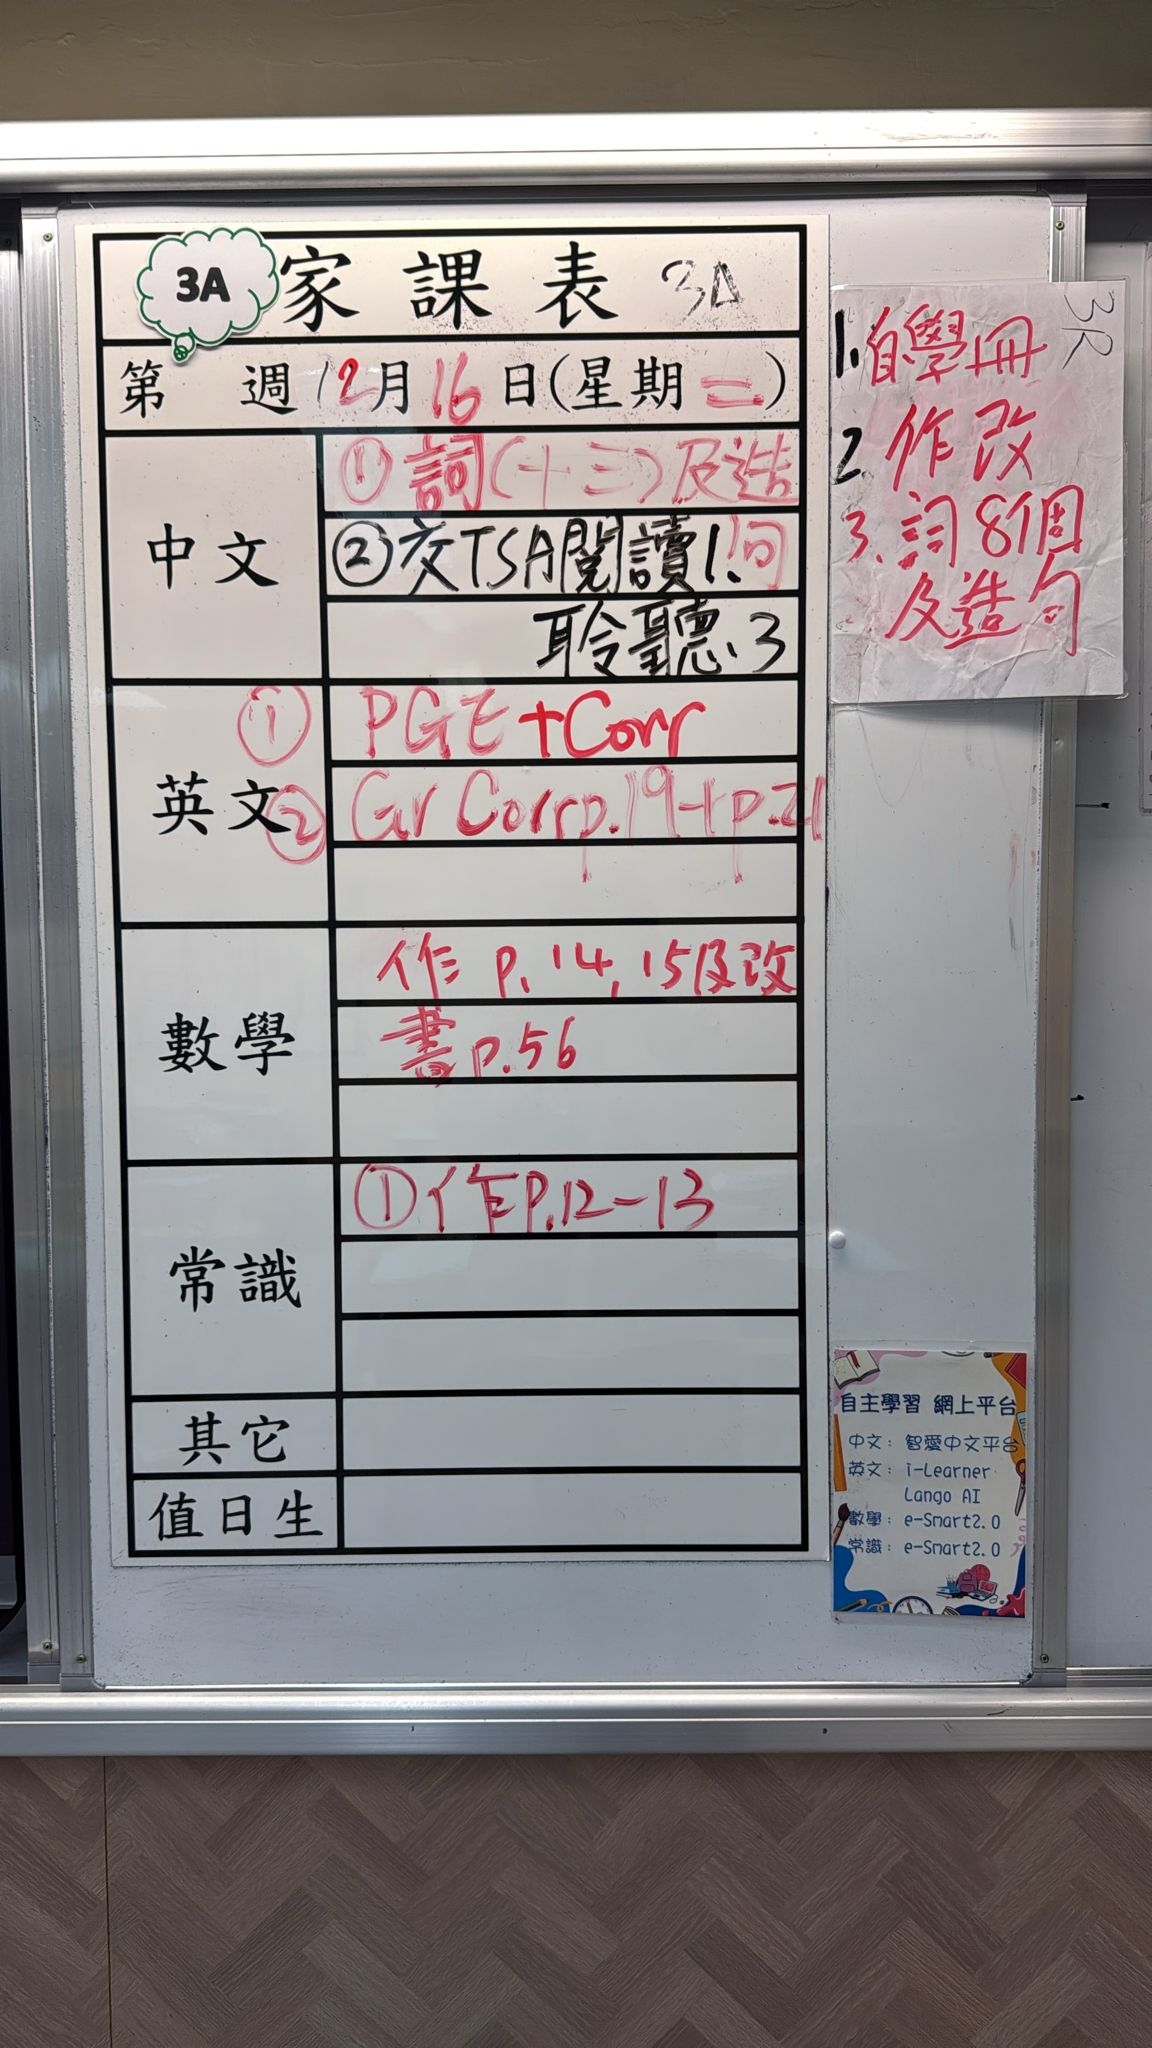 3A
家課表 3A
第 週 12月16日(星期二)
中文
①詞(十三)及造句
②交TSA閱讀1.
聆聽.3
英文
① PGE+Corr
② Gr Corr p.19+p.21
數學
作 p.14,15及改
書 p.56
常識
①作P.12-13
其它
值日生
3R
1.自學冊
2.作改
3.詞8個
及造句
自主學習 網上平台
中文：智愛中文平台
英文：i-Learner
Lango AI
數學：e-Smart2.0
常識：e-Smart2.0